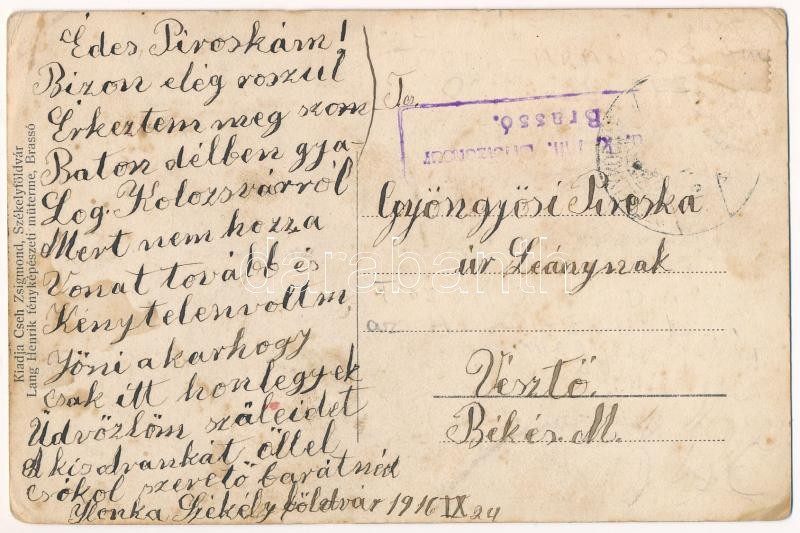 Édes Piroskám!
Bizon elég roszúl
Érkeztem meg szom
Baton délben gya-
Log. Kolozsvárról
Mert nem hozza
Vonat tovább és
Kénytelenvoltm
Jöni akarhogy
csak itt honlegyek
Üdvözlöm szüleidet
A kis dvankát öllel
csókol szerető barátnéd
Ilonka Székely földvár 1916 IX 24
Kiadja Cseh Zsigmond, Székelyföldvár
Lang Henrik fényképészeti műterme, Brassó
Brassó.
Gyöngyösi Piroska
úr Leánynak
Vésztő.
Békés. M.
darabanth